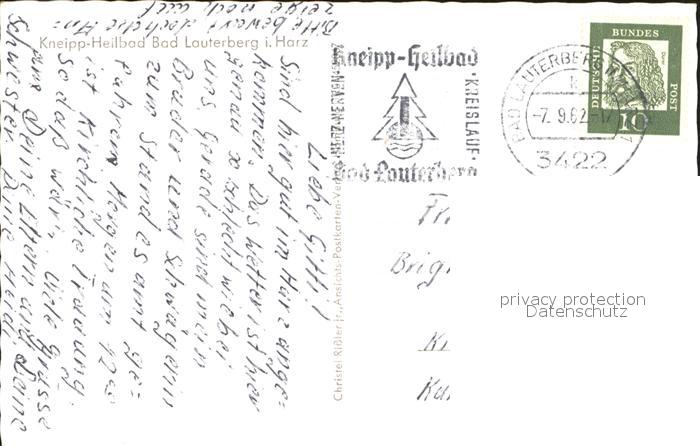 Kneipp-Heilbad Bad Lauterberg i. Harz
Liebe Gitti!
Sind hier gut im Harz ange=
kommen. Das Wetter ist hier
genau so schlecht wie bei
uns. Gerade sind mein
Bruder und Schwägerin
zum Standesamt ge=
fahren. Morgen um 12 00
ist kirchliche Trauung.
So das wär's. Viele Grüsse
an Deine Eltern und Deine
Schwester. Deine
Bitte bewahrt doch die
zeige noch auf
Christel Rißler jr., Ansichts-Postkarten-Ver
Kneipp-Heilbad
HERZ-NERVEN-
KREISLAUF
Bad Lauterberg
BAD LAUTERBERG
-7. 9.62.-17
3422
DEUTSCHE
BUNDES
POST
10
Fr
Brig
K
Ka
privacy protection
Datenschutz